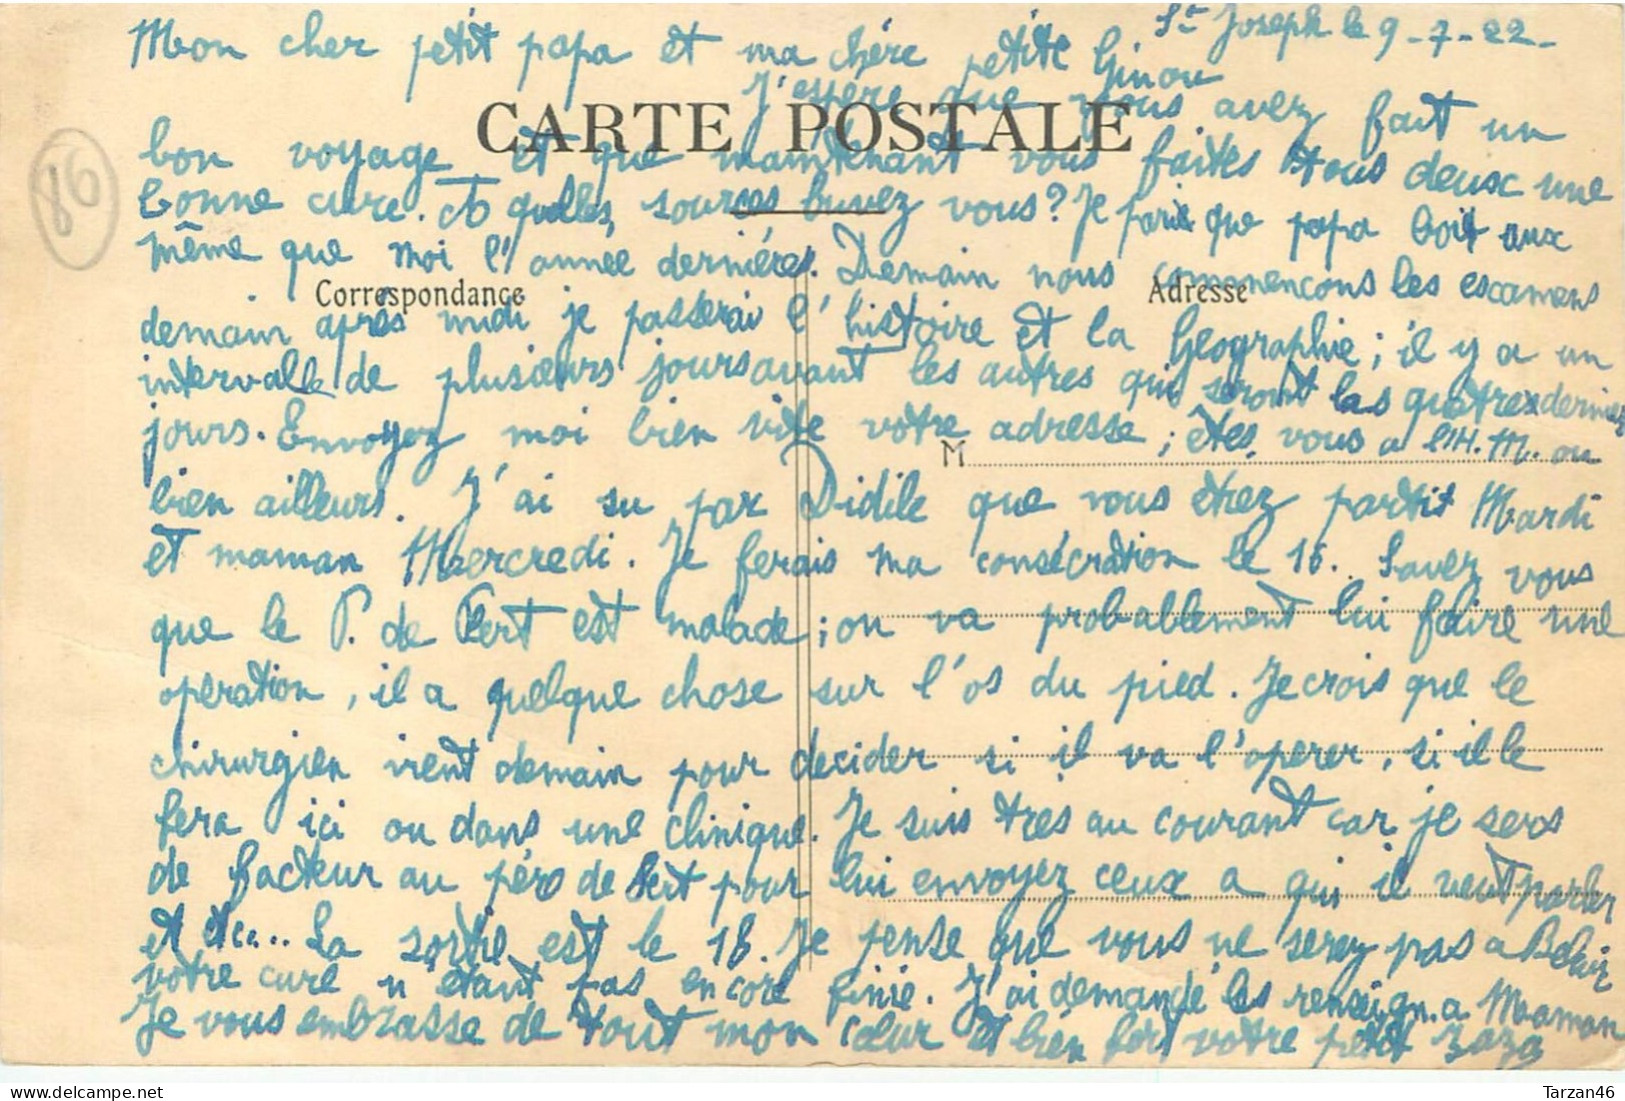 St Joseph le 9-7-22-
Mon cher petit papa et ma chère petite Ginou
J'espère que vous avez fait un
CARTE POSTALE
bon voyage et que maintenant vous faites tous deux une
bonne cure. Et quelles sources buvez vous? Je parie que papa boit aux
même que moi l'année dernières. Demain nous commencons les examens
Correspondance
Adresse
demain après midi je passerai l'histoire et la Géographie; il y a un
intervalle de plusieurs jours avant les autres qui seront les quatres derniers
jours. Envoyez moi bien vite votre adresse; êtes vous a l'H. M. ou
M
bien ailleurs. J'ai su par Didile que vous étiez partit Mardi
et maman Mercredi. Je ferais ma consécration le 16. Savez vous
que le P. de Pert est malade; on va probablement lui faire une
opération, il a quelque chose sur l'os du pied. Je crois que le
chirurgien vient demain pour decider si il va l'operer, si il le
fera ici ou dans une clinique. Je suis tres au courant car je sers
de facteur au père de Pert pour lui envoyez ceux a qui il veut parler
et etc... La sortie est le 18. Je pense que vous ne serez pas a
votre cure n'étant pas encore finie. J'ai demandé les renseign. a Maman
Je vous embrasse de tout mon cœur et bien fort votre petit Zaza
86
Tarzan46